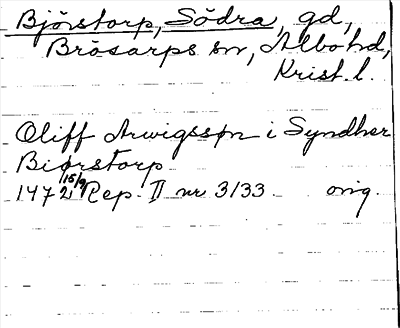 Björstorp, Södra, gd,
Brösarps sn, Albo hd,
Krist. l.
Oliff Arwigsson i Syndher
Biorstorp
1472 15/9 Rep. II nr 3133 orig.